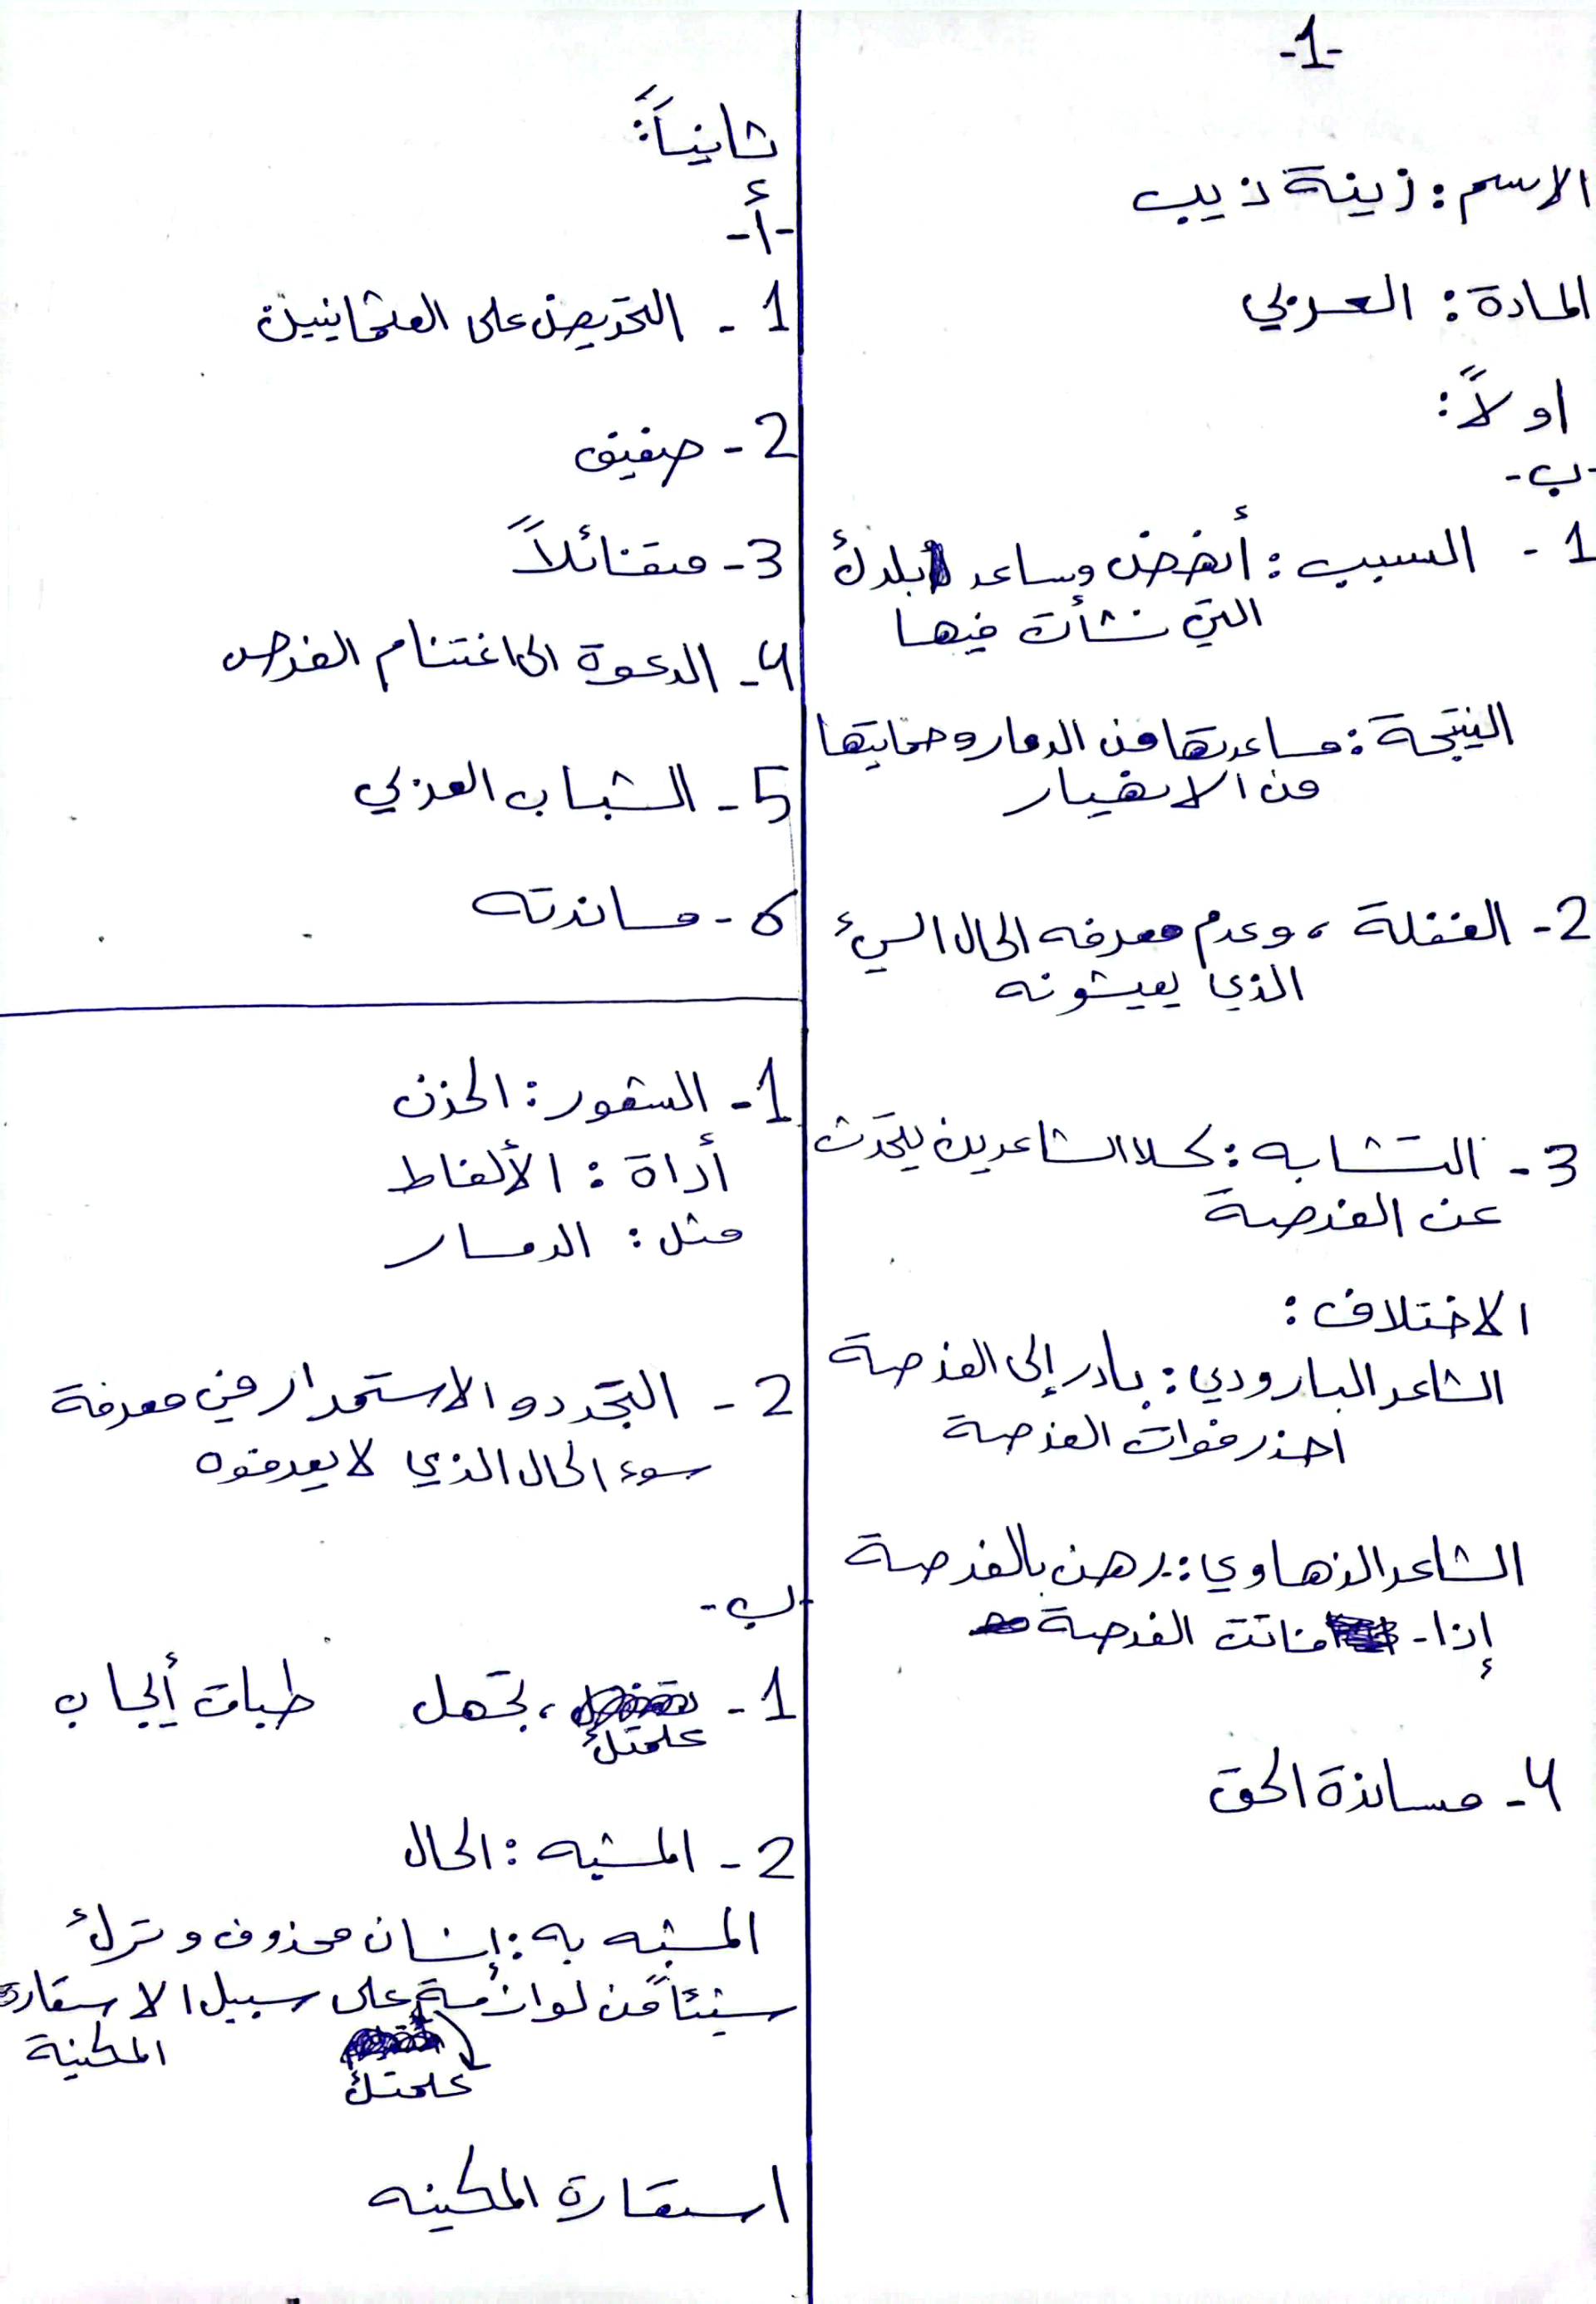 -1-
الاسم: زينة ذيب
المادة: العربي
اولاً:
-ب-
1- السبب: أنهض وساعد بلدك
التي نشأت فيها
النتيجة: مساعدتها من الدمار وحمايتها
من الانهيار
2- الغفلة، وعدم معرفه الحال السيء
الذي يعيشونه
3- التشابه: كلا الشاعرين يتحدث
عن الفرصة
الاختلاف:
الشاعر البارودي: بادر إلى الفرصة
احذر فوات الفرصة
الشاعر الزهاوي: يرهن بالفرصة
إذا فاتت الفرصة
4- مساندة الحق
ثانياً:
-أ-
1- التحريض على العثمانيين
2- ضفيف
3- متفائلاً
4- الدعوة الى اغتنام الفرص
5- الشباب العربي
6- مساندته
1- الشعور: الحزن
أداة: الألفاظ
مثل: الدمار
2- التجدد والاستمرار في معرفة
سوء الحال الذي لا يعرفوه
-ب-
1- ، تجهل طباق أيجاب
علمتك
2- المشبه: الحال
المشبه به: إنسان محذوف وترك
شيئاً من لوازمة على سبيل الاستعارة
المكنية
علمتك
استعارة المكنيه